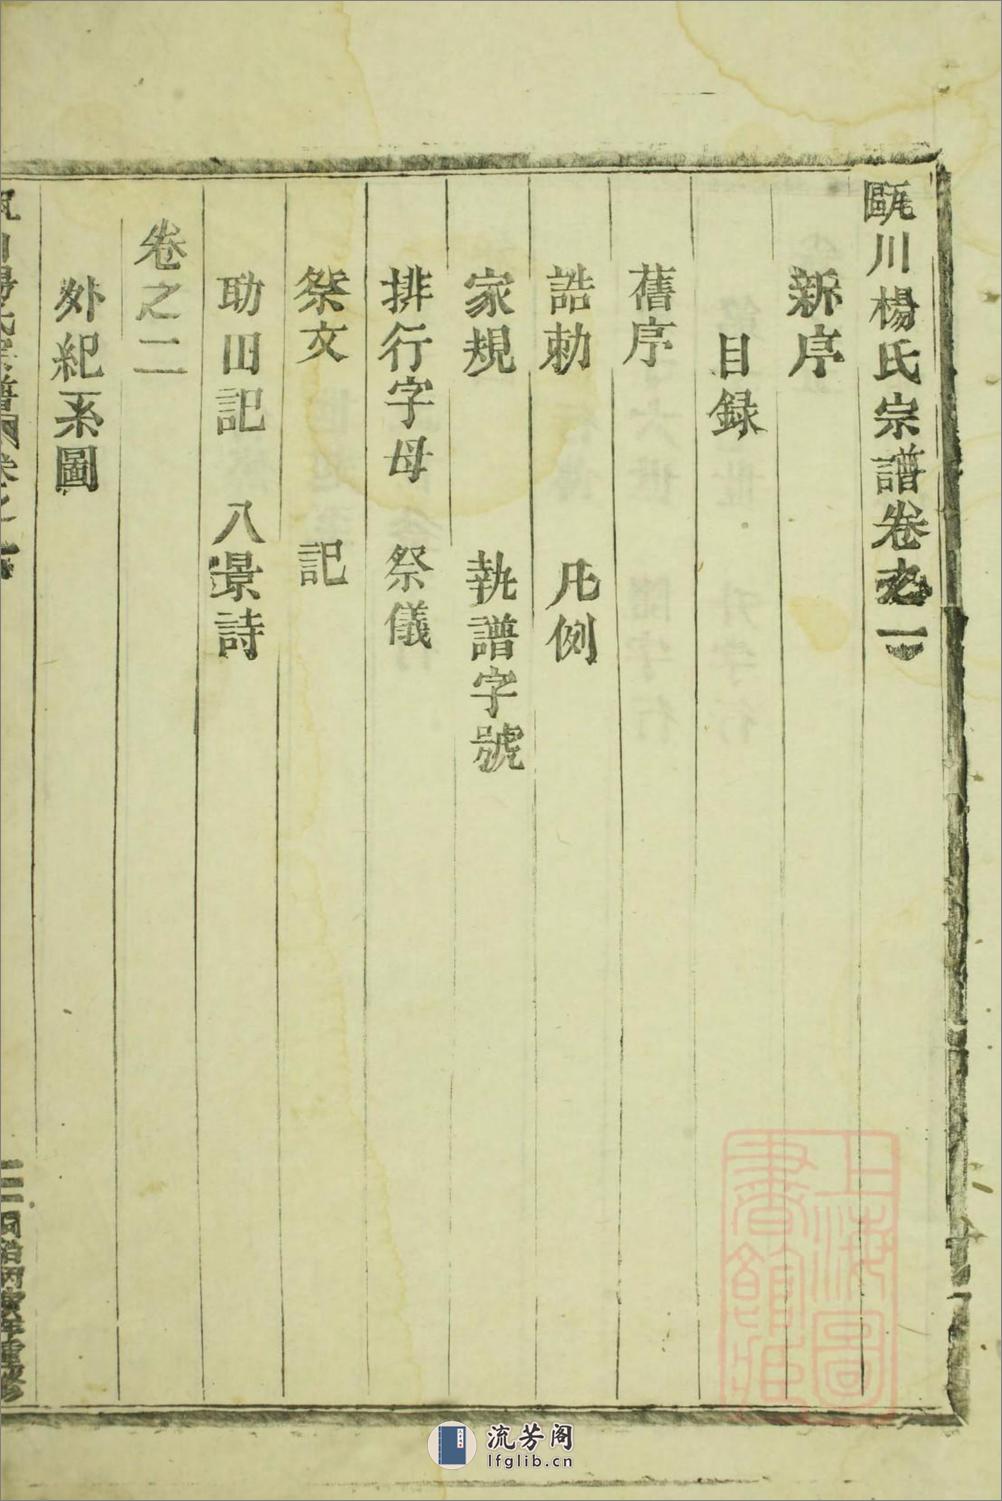 甌川楊氏宗譜卷之一
新序
目録
舊序
誥勅 凡例
家規 執譜字號
排行字母 祭儀
祭文 記
助田記 八景詩
卷之二
外紀系圖
川楊氏宗譜 卷之一
同治丙寅年重修
上海圖書館藏
流芳阁
lfglib.cn